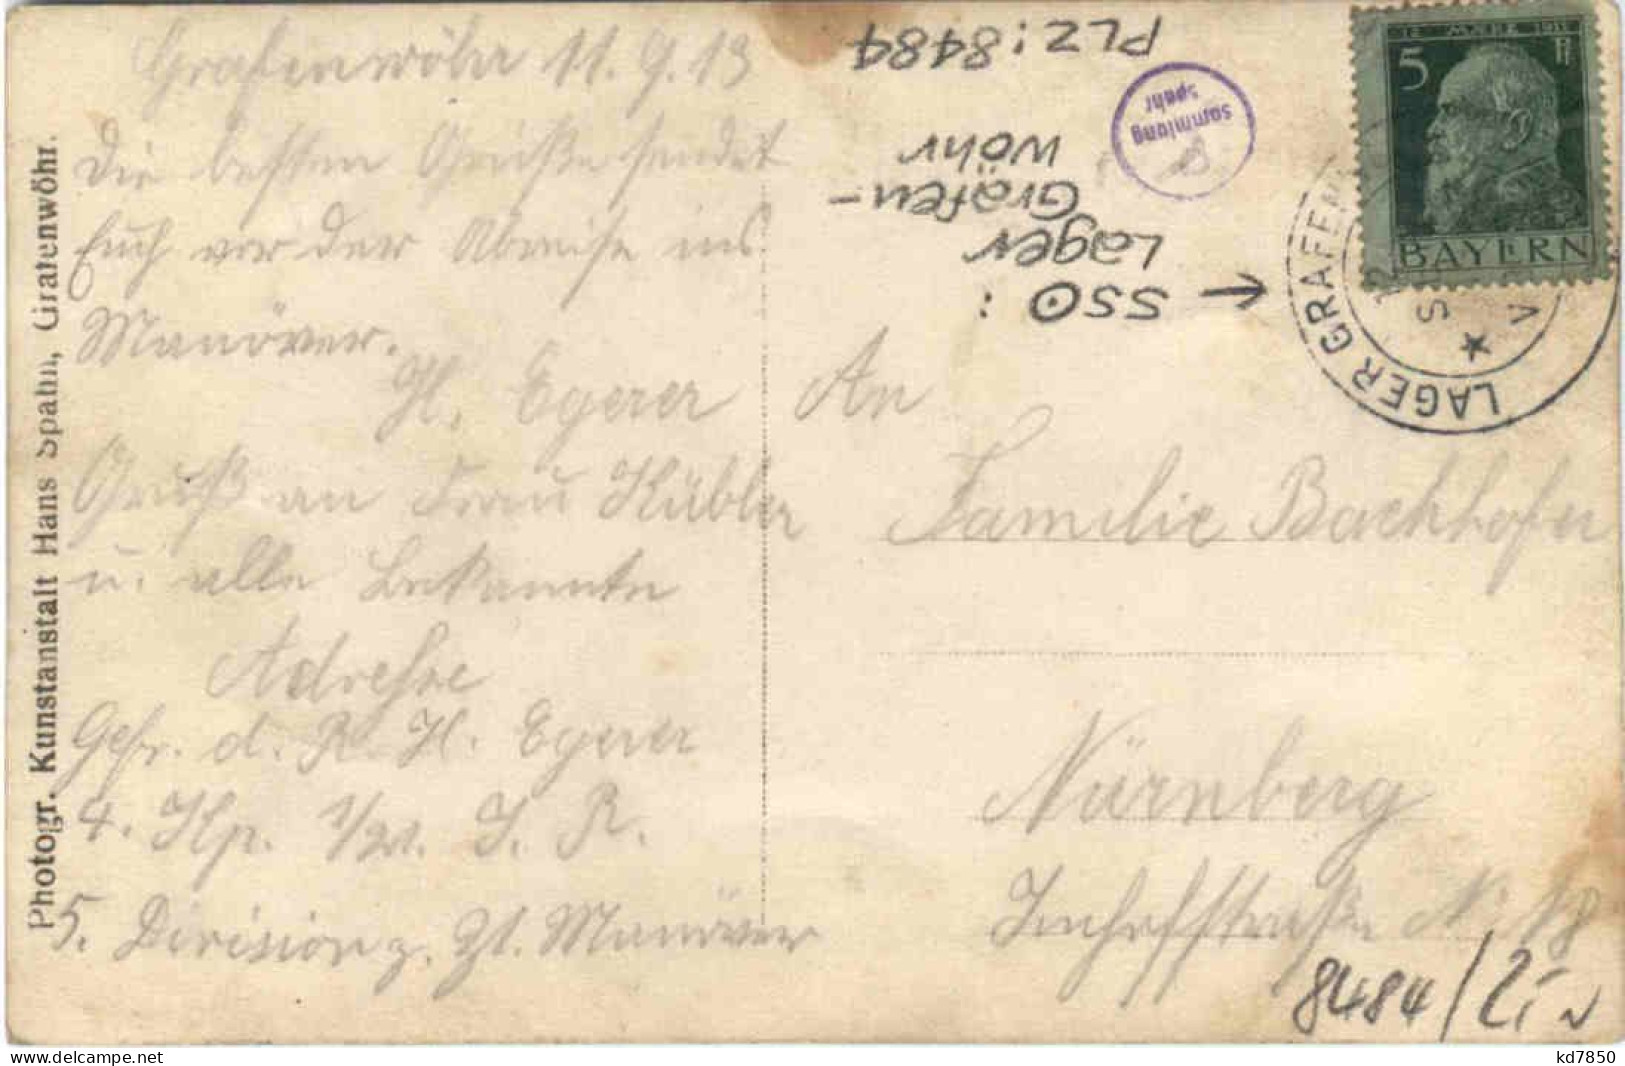 Grafenwöhr 11.9.13
Die besten Grüße sendet
Euch vor der Abreise ins
Manöver.
H. Egerer
Gruß an Frau Kübler
u. alle Bekannte
Adresse
Gefr. d. R. H. Egerer
4. Kp. 1/21. I. R.
5. Division z. Zt. Manöver
Photogr. Kunstanstalt Hans Spahn, Grafenwöhr.
An
Familie Bachhofer
Nürnberg
Imhofstraße Nr. 18
PLZ: 8484
SSO:
Lager
Grafen-
wöhr
sammlung
spahr
12. MÄRZ 1911
5 Pf
BAYERN
LAGER GRAFEN
8484/2,- N
www.delcampe.net
kd7850